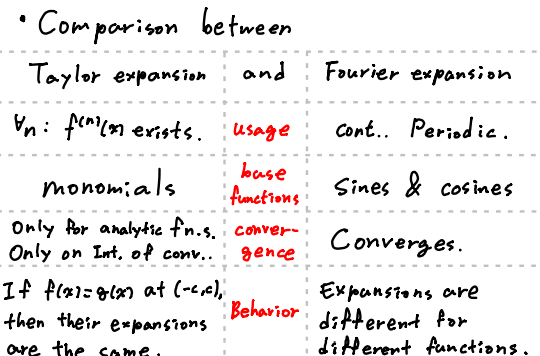 • Comparison between
Taylor expansion and Fourier expansion
∀n: f⁽ⁿ⁾(x) exists. usage cont.. Periodic.
monomials base functions Sines & cosines
Only for analytic fn.s.
Only on Int. of conv.. conver-
gence Converges.
If f(x)=g(x) at (-c,c),
then their expansions
are the same.
Behavior
Expansions are
different for
different functions.